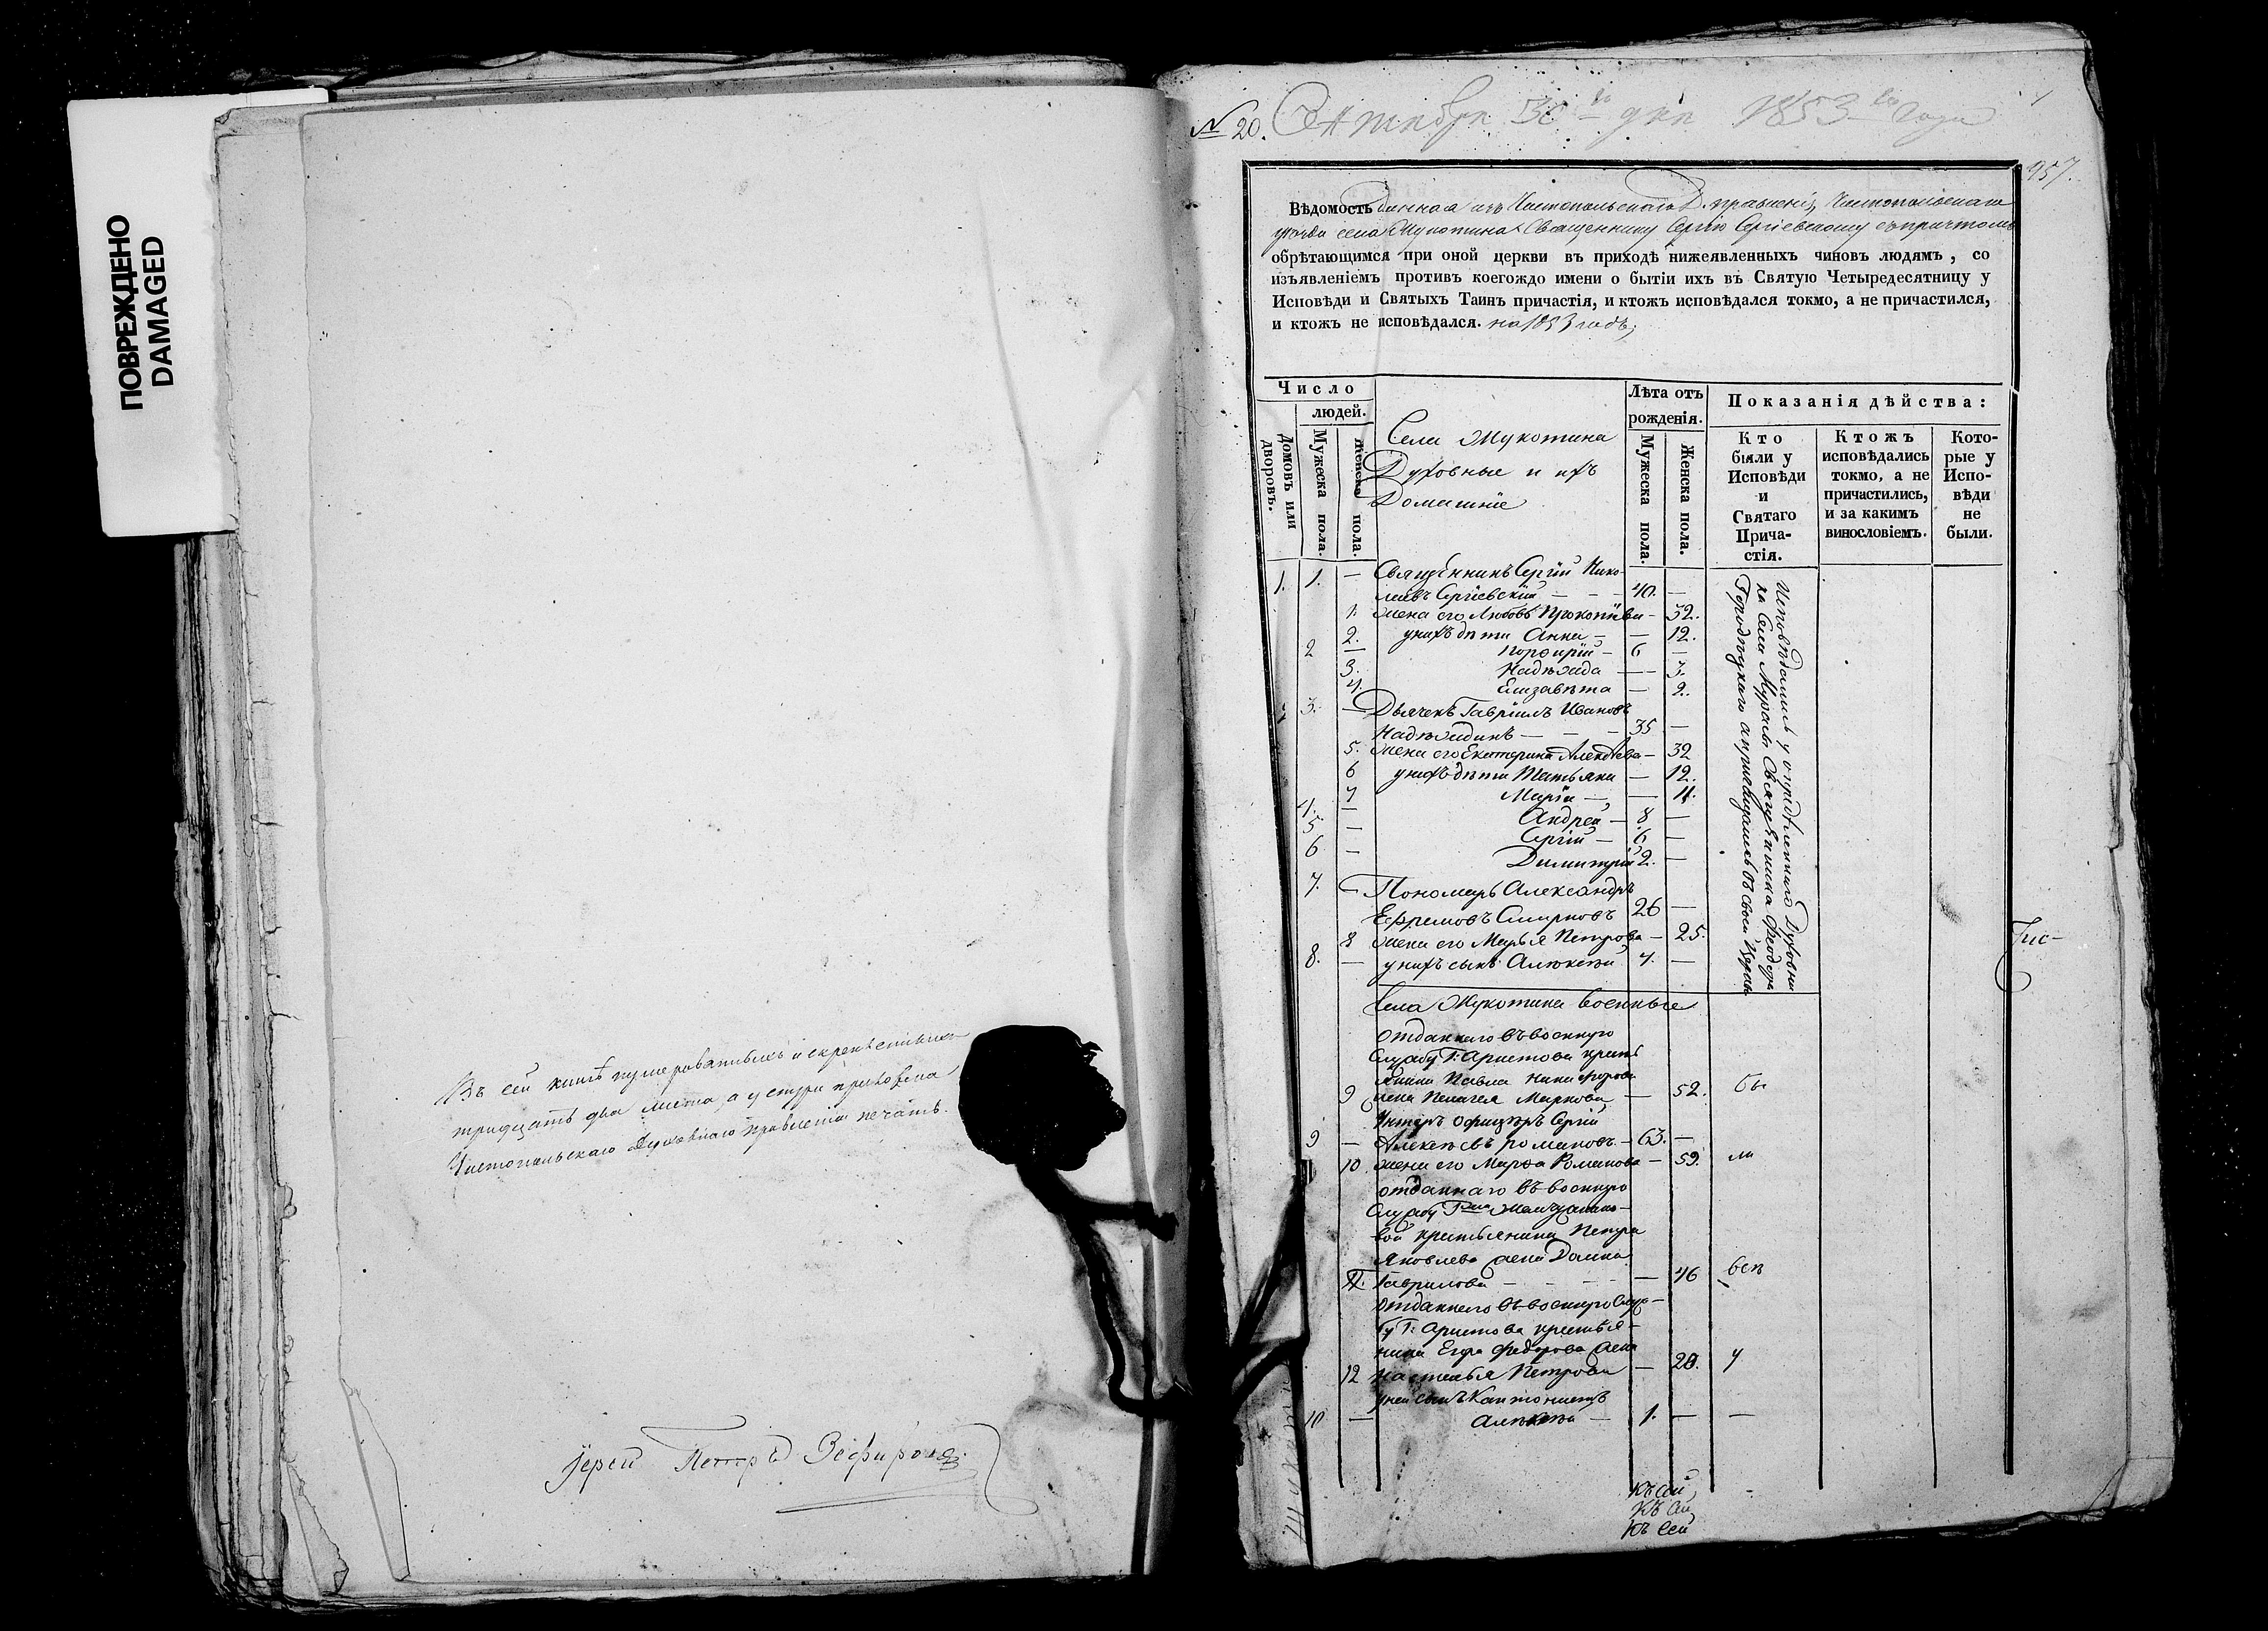 ПОВРЕЖДЕНО
DAMAGED
Въ сей книгѣ нумерованныхъ и скрепленныхъ
тридцать два листа, а у снура приложена
Чистопольскаго Духовнаго Правленія печать.
Іерей Петръ Зефировъ
№ 20. Сентября 30го дня 1853го года
957.
Вѣдомость данная изъ Чистопольскаго Д. правленія, Чистопольскаго
уезда села Мукотина Священнику Сергію Сергіевскому съ причтомъ
обрѣтающимся при оной церкви въ приходѣ нижеявленныхъ чиновъ людямъ, со
изъявленіемъ противъ коегождо имени о бытіи ихъ въ Святую Четыредесятницу у
Исповѣди и Святыхъ Таинъ причастія, и ктожъ исповѣдался токмо, а не причастился,
и ктожъ не исповѣдался. на 1853 годъ,
Число
людей.
Домовъ или дворовъ.
Мужеска пола.
Женска пола.
Села Мукотина
Духовные и ихъ
Домашніе
Лѣта отъ
рожденія.
Мужеска пола
Женска пола.
Показанія дѣйства:
Кто
были у
Исповѣди
и
Святаго
Прича-
стія.
Ктожъ
исповѣдались
токмо, а не
причастились,
и за какимъ
винословіемъ.
Кото-
рые у
Испо-
вѣди
не
были.
1. 1. — Священникъ Сергій Нико-
лаевъ Сергіевскій — 40. —
1. жена его Любовь Прокопіева — 32.
2. у нихъ дѣти Анна — — 12.
2 — Порфирій — 6 —
3. Надѣжда — — 3.
4. Елизавѣта — 2.
3. — Дьячекъ Гавріилъ Ивановъ
Надѣждинъ — — — 35 —
5. жена его Екатерина Алексѣева — 32
6 у нихъ дѣти Татьяна — 12.
7 Марія — — 11.
4. — Андрей — 8 —
5 — Сергій — 6 —
6 — Димитрій 2. —
7. — Пономарь Александръ
Ефремовъ Смирновъ 26 —
8 жена его Марья Петрова — 25.
8. — у нихъ сынъ Алѣксѣй 4. —
Исповѣдались у опредѣленнаго Духовни
ка села Мурасы Священника Феодора
Городецкаго а пріобщались въ своей Церкви
Гис-
Села Мукотина военные
Отданнаго въ военную
службу Г. Аристова кресть
янина Павла Никифорова
9 жена Пелагея Маркова — 52. бы
Унтеръ Офицеръ Сергій
9 — Алексѣевъ Романовъ — 63. —
10. жена его Марфа Романова — 59. ли
отданнаго въ военную
службу Г-жи
вой крестьянина Петра
Яковлева жена Домна
11. Гаврилова — — — 46 всѣ
Отданнаго въ военную служ-
бу Г. Аристова крестья-
нина Егора Федорова жена
12 Настасья Петрова — 28. у
у ней сынъ Кантонистъ
10 — Алѣксѣй — 1. — —
Къ сей,
Къ сей,
Къ сей